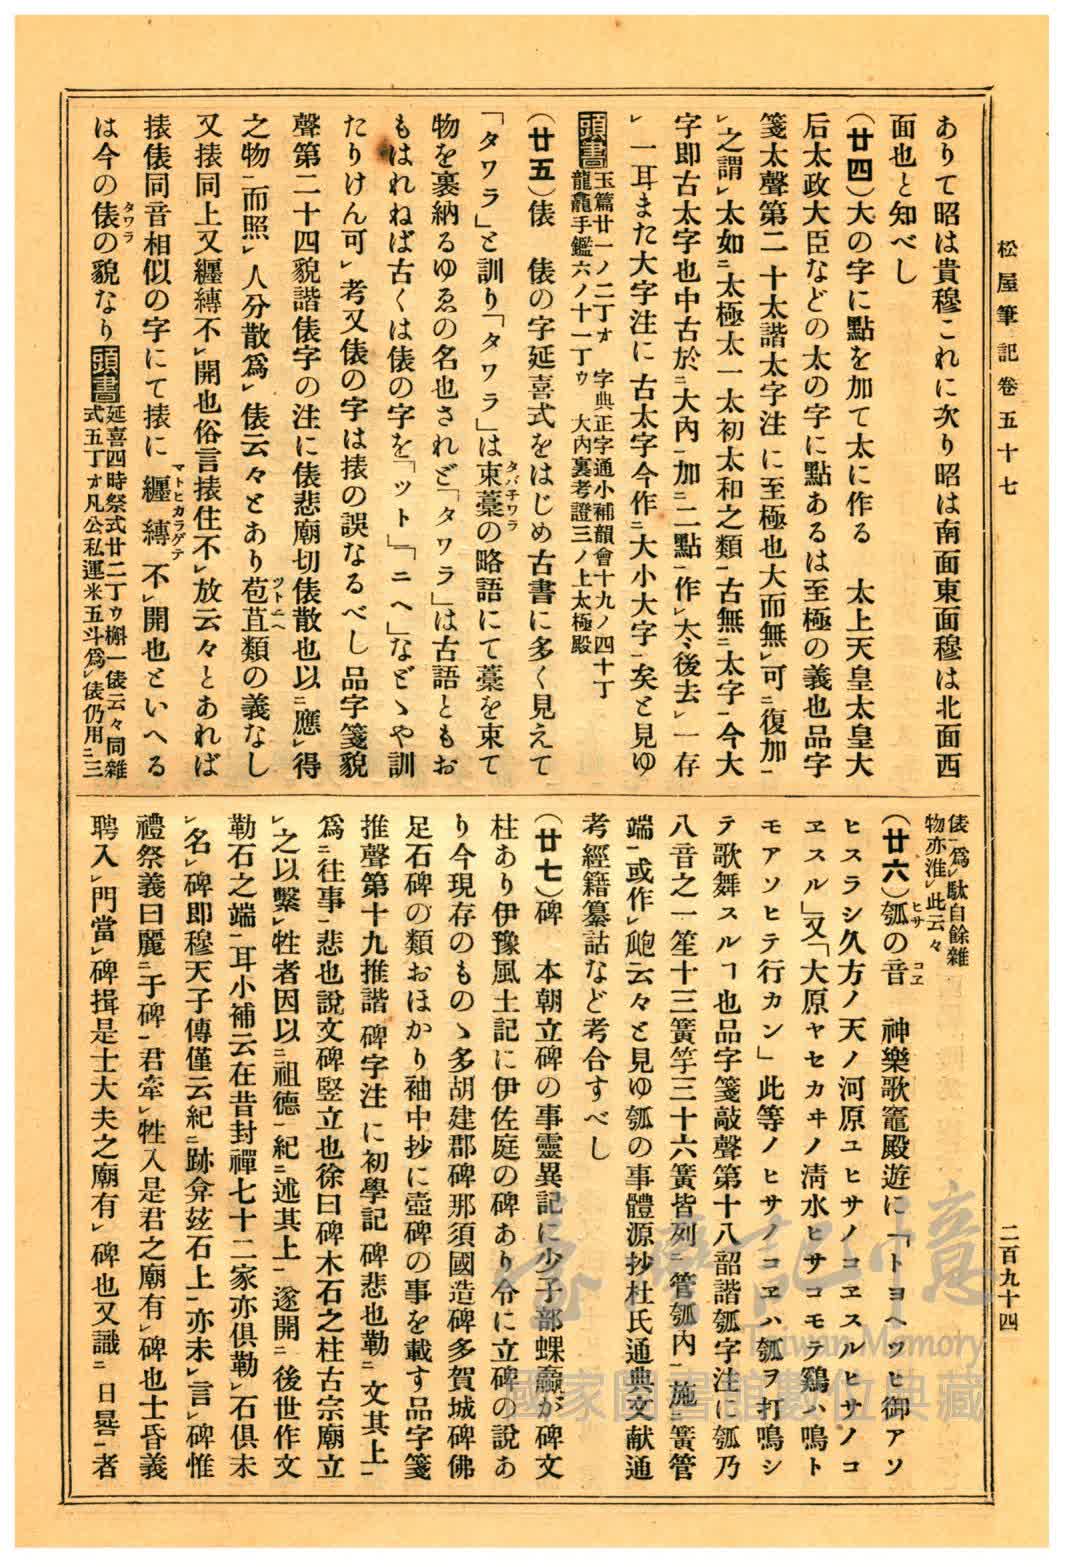 松屋筆記卷五十七
二百九十四
ありて昭は貴穆これに次り昭は南面東面穆は北面西
面也と知べし
(廿四)大の字に點を加て太に作る　太上天皇太皇大
后太政大臣などの太の字に點あるは至極の義也品字
箋太聲第二十太諧太字注に至極也大而無レ可ニ復加一
レ之謂レ太如ニ太極太一太初太和之類一古無ニ太字一今大
字即古太字也中古於ニ大內一加ニ二點一作レ太後去レ一存
レ一耳また大字注に古太字今作ニ大小大字一矣と見ゆ
頭書 玉篇廿一ノ二丁オ　字典正字通小補韻會十九ノ四十丁
龍龕手鑑六ノ十一丁ウ　大內裏考證三ノ上太極殿
(廿五)俵　俵の字延喜式をはじめ古書に多く見えて
「タワラ」と訓り「タワラ」は束藁タバネワラの略語にて藁を束て
物を裹納るゆゑの名也されど「タワラ」は古語ともお
もはれねば古くは俵の字を「ツト」「ニヘ」などゝや訓
たりけん可レ考又俵の字は捸の誤なるべし品字箋貌
聲第二十四貌諧俵字の注に俵悲廟切俵散也以ニ應レ得
之物一而照レ人分散爲レ俵云々とあり苞苴ツトニヘ類の義なし
又捸同上又纒縛不レ開也俗言捸住不レ放云々とあれば
捸俵同音相似の字にて捸に纒縛マトヒカラゲテ不レ開也といへる
は今の俵タワラの貌なり 頭書 延喜四時祭式廿二丁ウ槲一俵云々同雜
式五丁オ凡公私運米五斗爲レ俵仍用ニ三
俵一爲レ駄自餘雜
物亦准レ此云々
(廿六)瓠ヒサの音コヱ　神樂歌竈殿遊に「トヨヘツヒ御アソ
ヒスラシ久方ノ天ノ河原ユヒサノコヱスルヒサノコ
ヱスル」又「大原ヤセカヰノ清水ヒサコモテ鷄ハ鳴ト
モアソヒテ行カン」此等ノヒサノコヱハ瓠ヲ打鳴シ
テ歌舞スルヿ也品字箋敲聲第十八韶諧瓠字注に瓠乃
八音之一笙十三簧竽三十六簧皆列ニ管瓠內一施ニ簧管
端一或作レ匏云々と見ゆ瓠の事體源抄杜氏通典文献通
考經籍纂詁など考合すべし
(廿七)碑　本朝立碑の事靈異記に少子部蜾蠃が碑文
柱あり伊豫風土記に伊佐庭の碑あり令に立碑の說あ
り今現存のものゝ多胡建郡碑那須國造碑多賀城碑佛
足石碑の類おほかり袖中抄に壺碑の事を載す品字箋
推聲第十九推諧碑字注に初學記碑悲也勒ニ文其上一
爲ニ往事一悲也說文碑竪立也徐曰碑木石之柱古宗廟立
レ之以繫レ牲者因以ニ祖德一紀ニ述其上一遂開ニ後世作文
勒石之端一耳小補云在昔封禪七十二家亦俱勒レ石俱未
レ名レ碑即穆天子傳僅云紀ニ跡弇玆石上一亦未レ言レ碑惟
禮祭義曰麗ニ于碑一君牽レ牲入是君之廟有レ碑也士昏義
聘入レ門當レ碑揖是士大夫之廟有レ碑也又識ニ日晷一者
臺灣記憶
Taiwan Memory
國家圖書館數位典藏